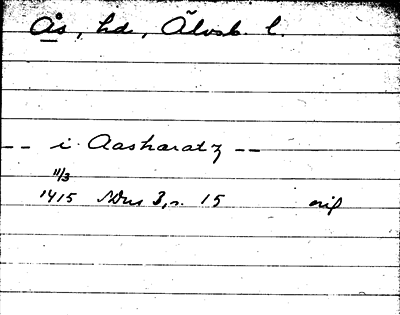 Ås, hd, Älvsb. l.
-- i Aasharatz --
11/3
1415 SDns 3, s. 15 orig